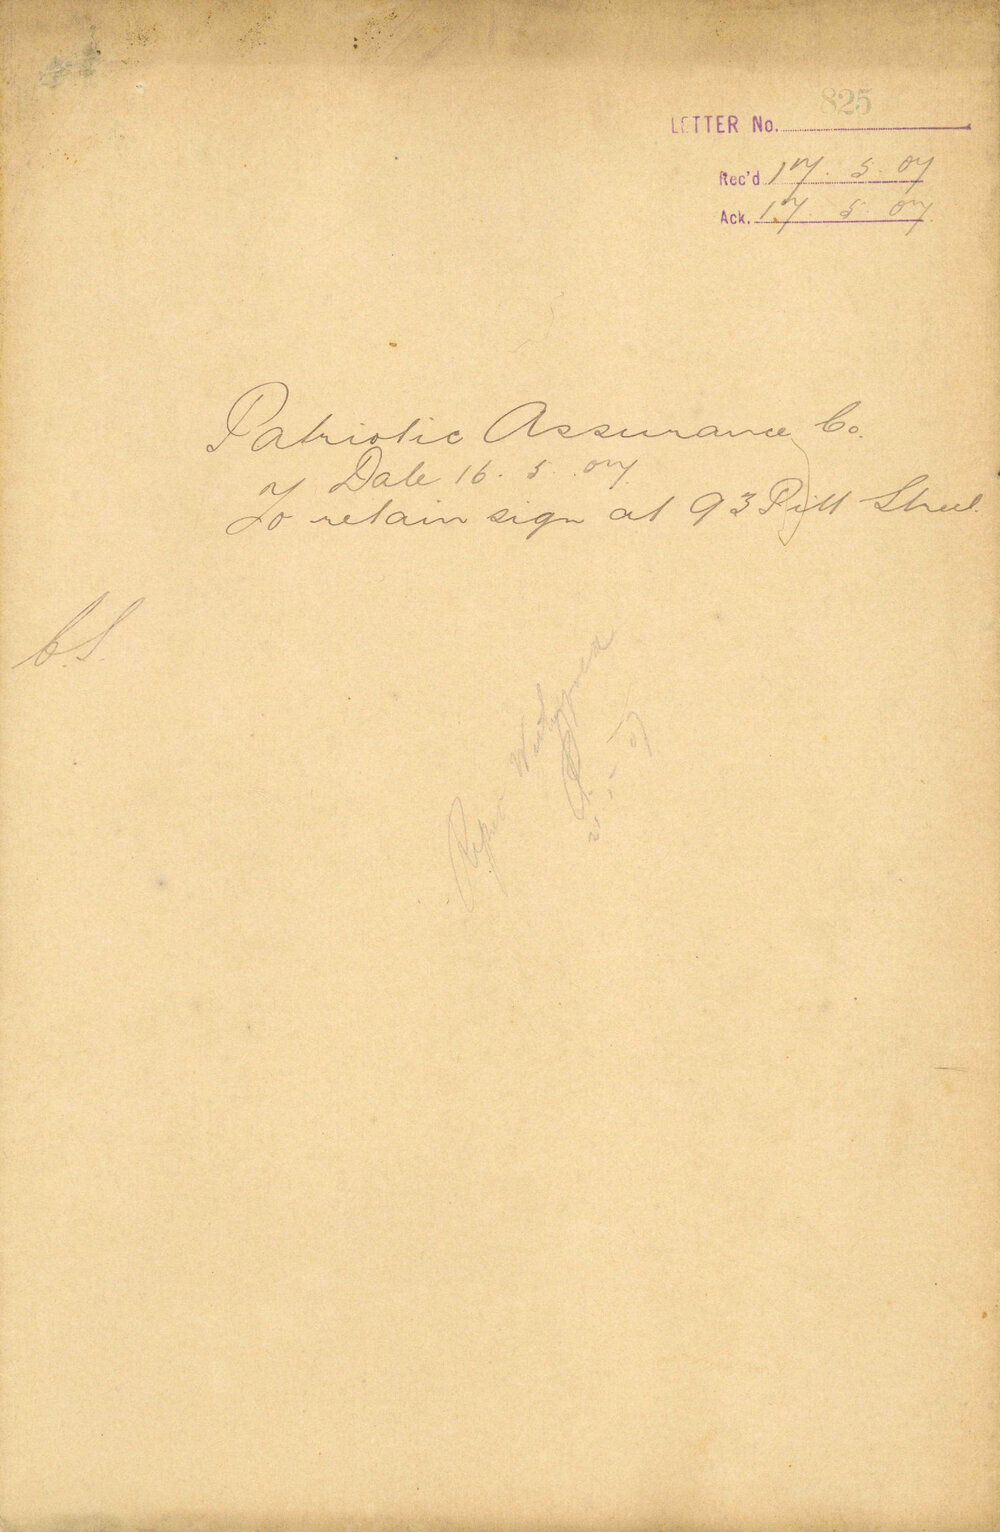 825
LETTER No.
Rec'd 17. 5. 07
Ack. 17 5 07
Patriotic Assurance Co.
Date 16. 5. 07
To retain sign at 93 Pitt Street.
C.S.